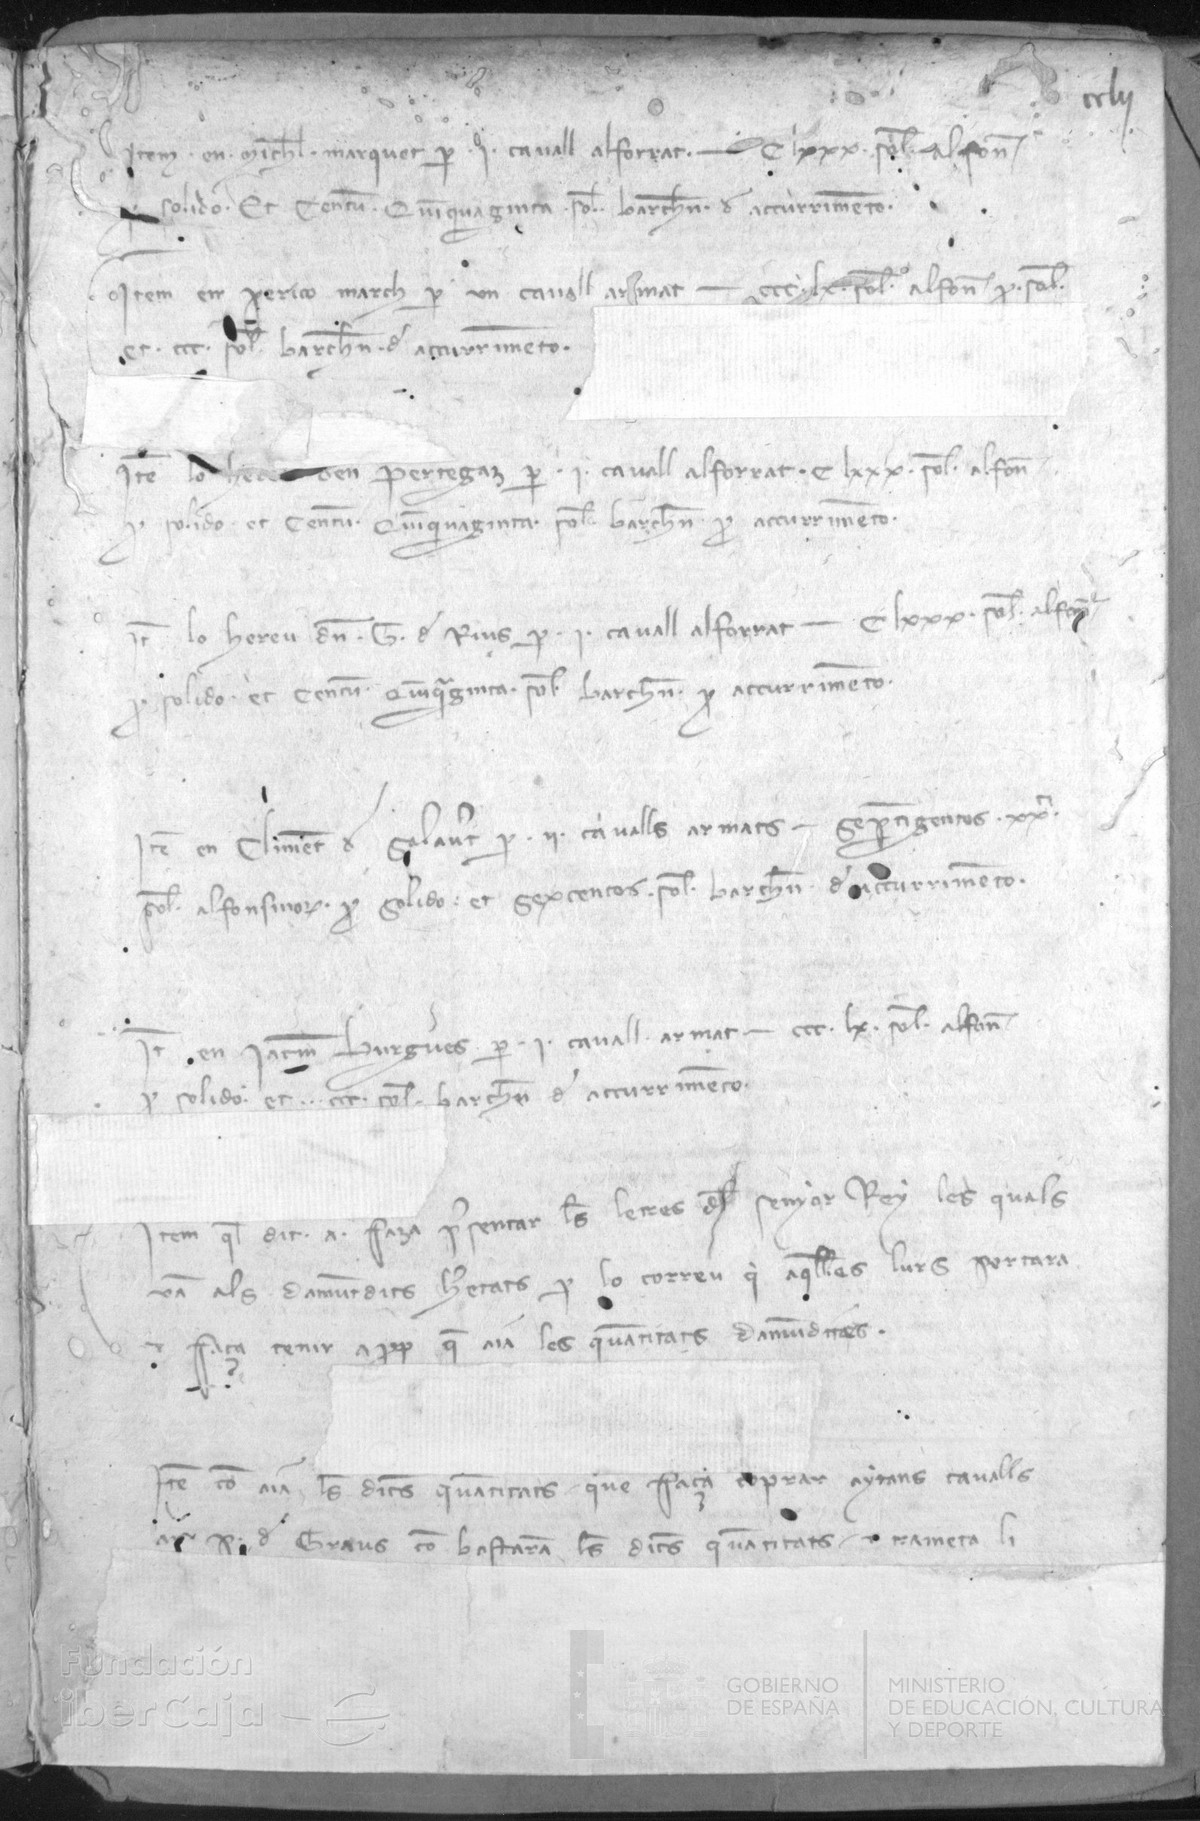 cclij
Item · en · Michl · marquet p · I · cavall alforrat · — C lxxx · sol · alfon
p solido · Et Centu · Quinquaginta · sol · barchn · d accurrimento ·
Item en perico march p un cavall armat — ccc · lx · sol · alfon p · sol ·
et · ccc · sol · barchn · d accurrimento ·
Ite lo hereu den pertegaz p · i · cavall alforrat · C lxxx · sol · alfon
p solido · et Centu · Quinquaginta · sol · barchn · p accurrimento ·
It lo hereu dn · G · d Rius p · i · cavall alforrat — C lxxx · sol · alfon
p · solido · et Centu · Quinqaginta · sol · barchn · p accurrimento ·
Ite en Climet d p · ii · cavalls armats — Septigentos · xx ·
sol · alfonsinor · p solido : et sexcentos · sol · barchn · d accurrimento ·
It en Jacm burgues · p · i · cavall · armat — ccc · lx · sol · alfon
p solido · et · ccc · sol · barchn d accurrimento ·
Item ql dit · a · faza psentar ls letres dl senyor Rey les quals
van als damutdits hetats p lo correu q aqlles lurs portara
faça tenir a prop q aia les quatitats damutdites ·
Ite co aia ls dites quatitats que faça coprar aytans cavalls
an R · d Graus co bastara ls dites quatitats trameta li
Fundación
iberCaja
GOBIERNO
DE ESPAÑA
MINISTERIO
DE EDUCACIÓN, CULTURA
Y DEPORTE